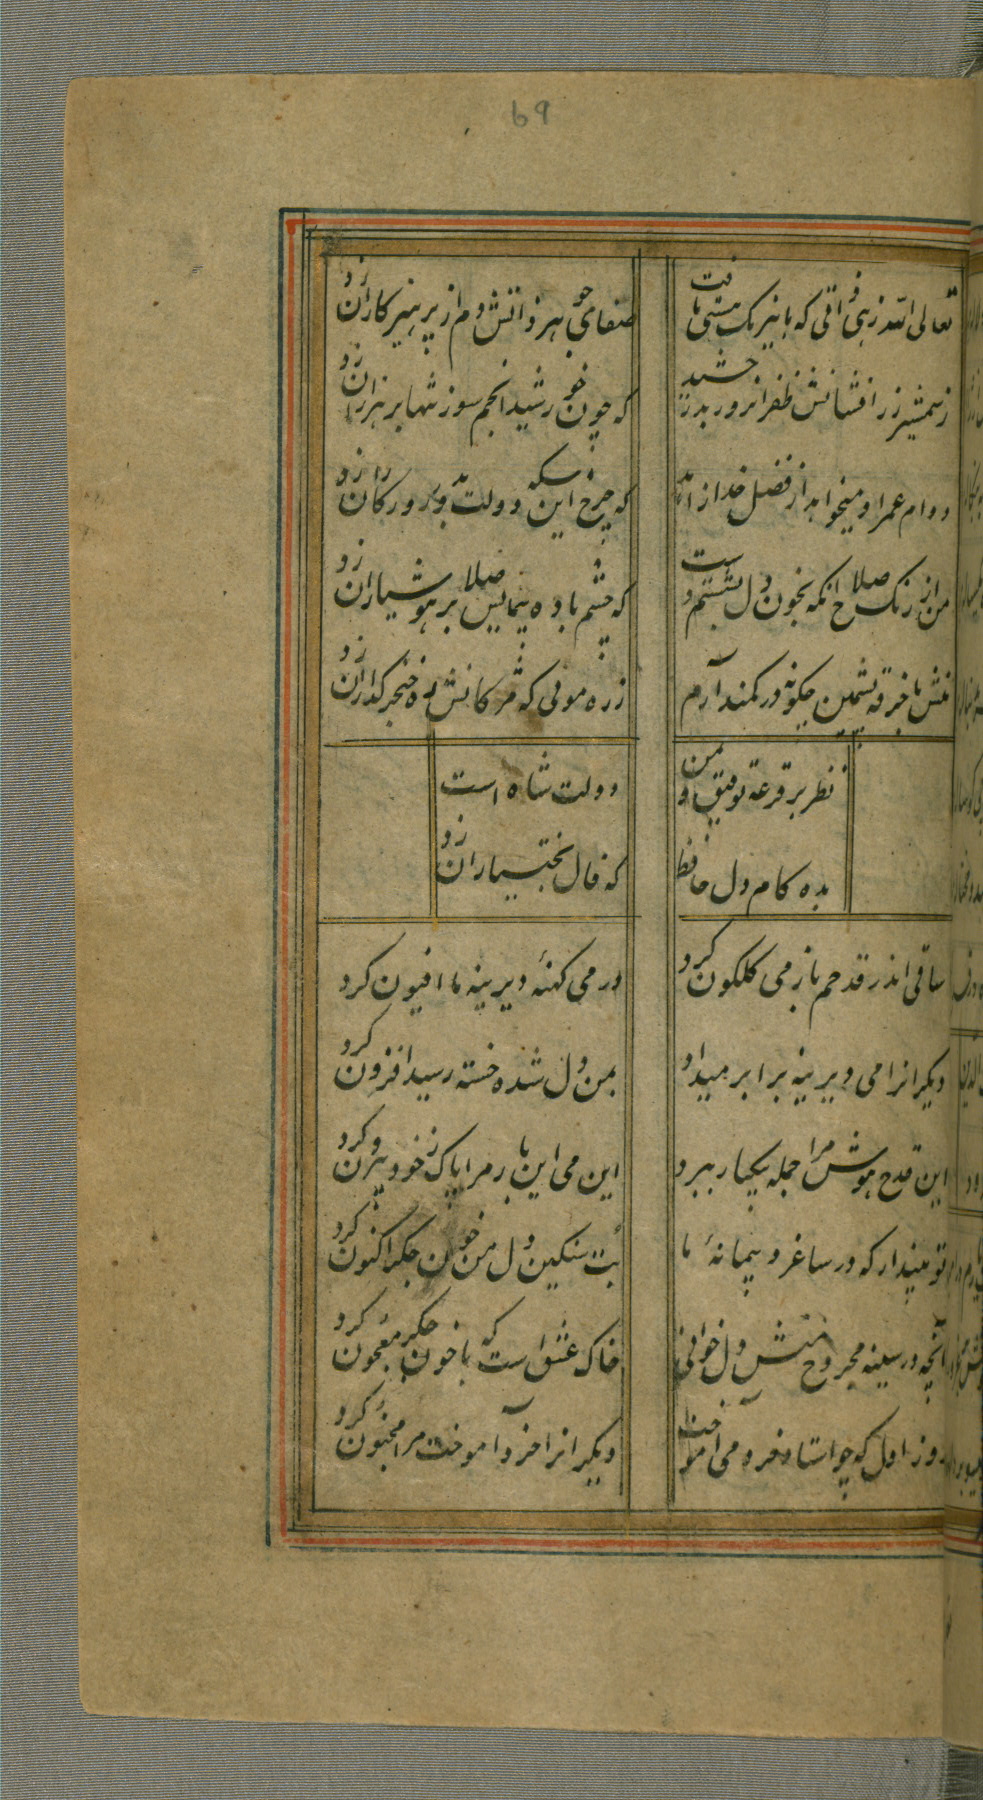 69
تعالی الله زهی ذاقی که با نیرنک هستی یافت
صفای جوهر ذاتش دم از پرهیزکاران زد
ز شمشیر زر افشانش ظفر انروز بدرخشید
که چون خورشید انجم سوز تنها بر هزاران زد
دوام عمر او میخواهد از فضل خدا
که چرخ این سکه دولت بدور
من از رنک صلاح انکه بخون دل بشستم دست
که چشم باده پیمایش صلا بر هوشیاران زد
منش با خرقه پشمین چکونه در کمند آرم
زره موئی که مژکانش ره خنجر کذاران زد
نظر بر قرعه توفیق و من
دولت شاه است
بده کام دل حافظ
که فال بختیاران زد
ساقی اندر قدحم باز می کلکون کرد
در می کهنهٔ دیرینه ما افیون کرد
دیکرانرا می دیرینه برابر میداد
بمن دل شده خسته رسید افزون کرد
این قدح هوش مرا جمله بیکبار ببرد
این می این بار مرا پاک ز خود بیرون کرد
تو مپندار که در ساغر و پیمانهٔ ما
بت سنکین دل من خون جکر اکنون کرد
آنچه در سینه مجروح منش دل خوانی
خاک عشق است که با خون جکر معجون کرد
روز اول که چو استاد فرو می آموخت
دیکرانرا خرد آموخت مرا مجنون کرد